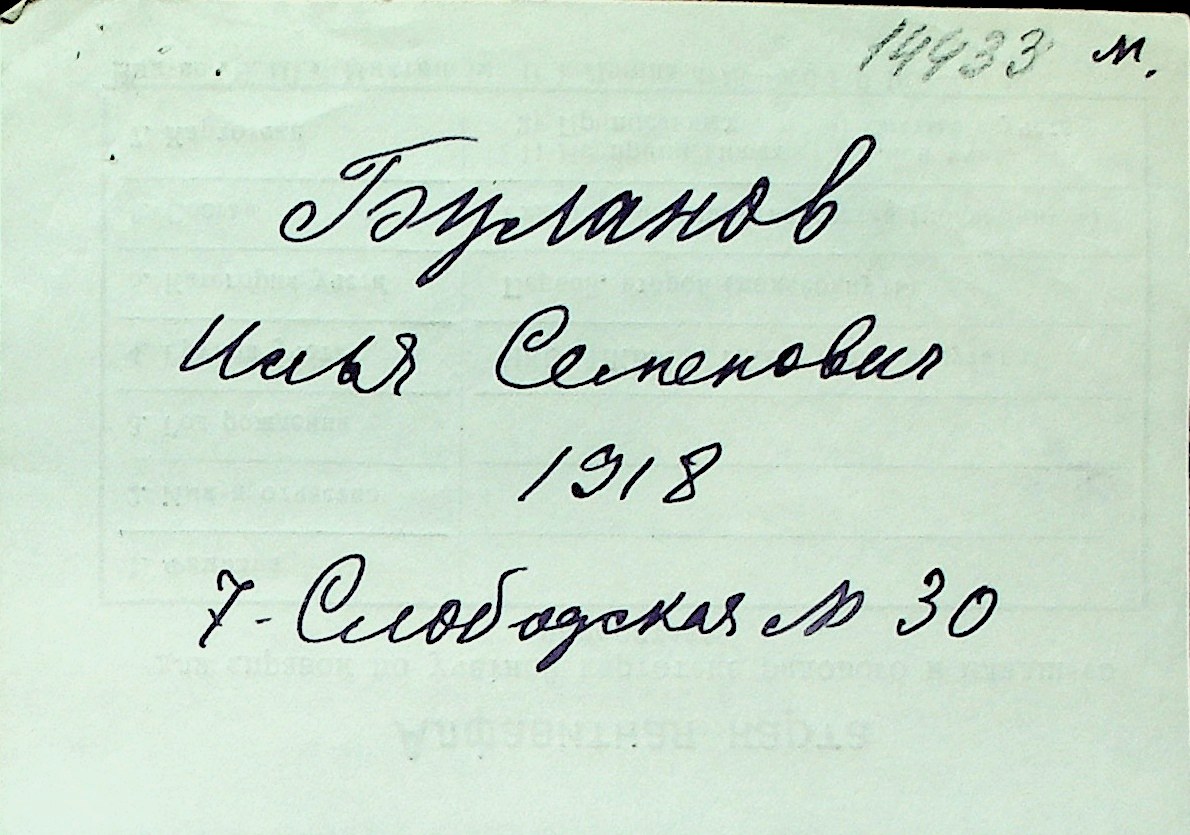 14433 м.
Буланов
Илья Семенович
1918
7-Слободская № 30